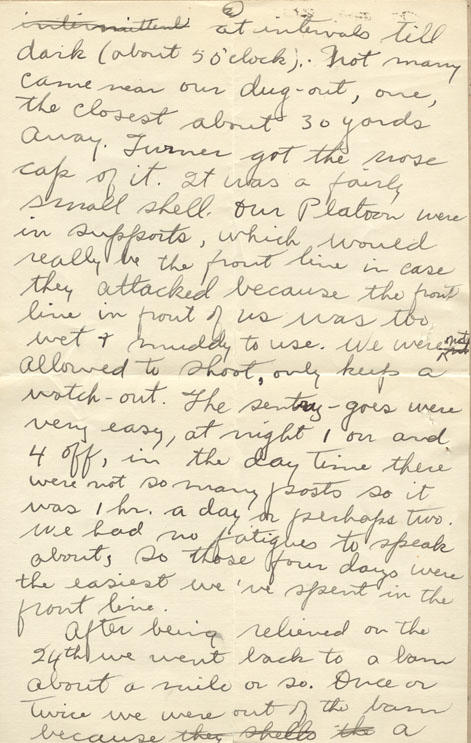 ②
intermittent at intervals till
dark (about 5 o'clock). Not many
came near our dug-out, one,
the closest about 30 yards
away. Turner got the nose
cap of it. It was a fairly
small shell. Our Platoon were
in supports, which would
really be the front line in case
they attacked because the front
line in front of us was too
wet & muddy to use. We were not
allowed to shoot, only keep a
watch-out. The sentry-goes were
very easy, at night 1 on and
4 off, in the day time there
were not so many posts so it
was 1 hr. a day or perhaps two.
We had no fatigues to speak
about, so those four days were
the easiest we've spent in the
front line.
After being relieved on the
24th we went back to a barn
about a mile or so. Once or
twice we were out of the barn
because they shells the a